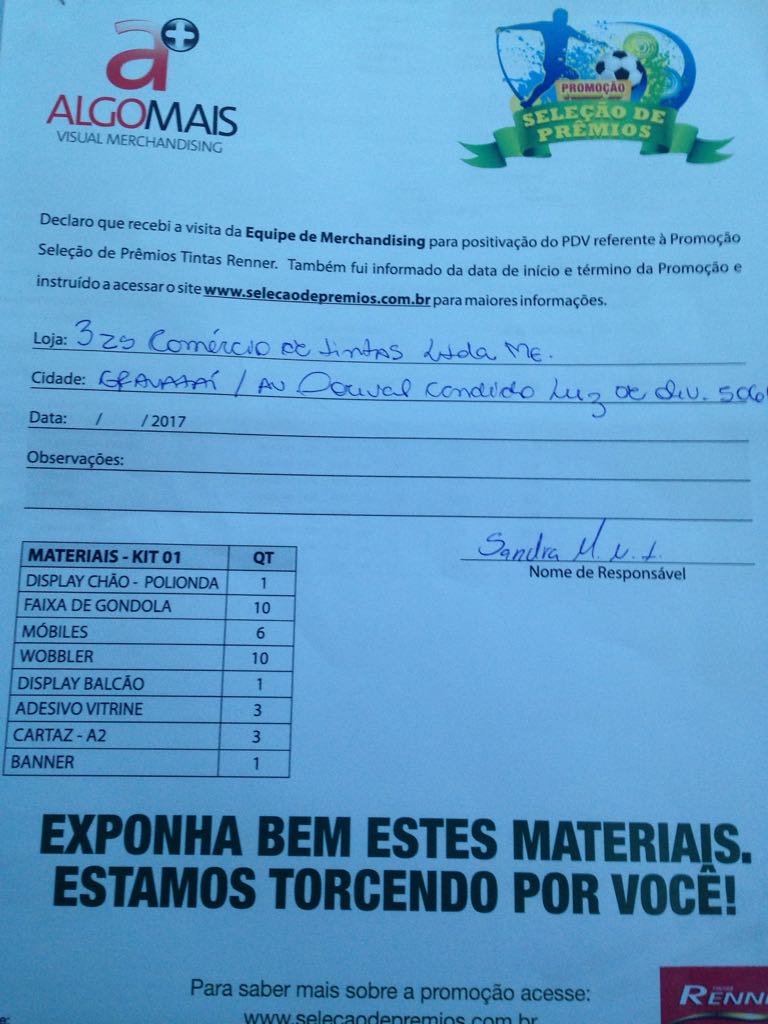 a+
ALGOMAIS
VISUAL MERCHANDISING
PROMOÇÃO
SELEÇÃO DE
PRÊMIOS
Declaro que recebi a visita da Equipe de Merchandising para positivação do PDV referente à Promoção
Seleção de Prêmios Tintas Renner. Também fui informado da data de início e término da Promoção e
instruído a acessar o site www.selecaodepremios.com.br para maiores informações.
Loja: Comércio de tintas Ltda ME.
Cidade: GRAVATAÍ / AV Dorival Condido Luz de oliv.
Data: / / 2017
Observações:
Sandra M.
Nome de Responsável
MATERIAIS - KIT 01 QT
DISPLAY CHÃO - POLIONDA 1
FAIXA DE GONDOLA 10
MÓBILES 6
WOBBLER 10
DISPLAY BALCÃO 1
ADESIVO VITRINE 3
CARTAZ - A2 3
BANNER 1
EXPONHA BEM ESTES MATERIAIS.
ESTAMOS TORCENDO POR VOCÊ!
Para saber mais sobre a promoção acesse:
www.selecaodepremios.com.br
RENN